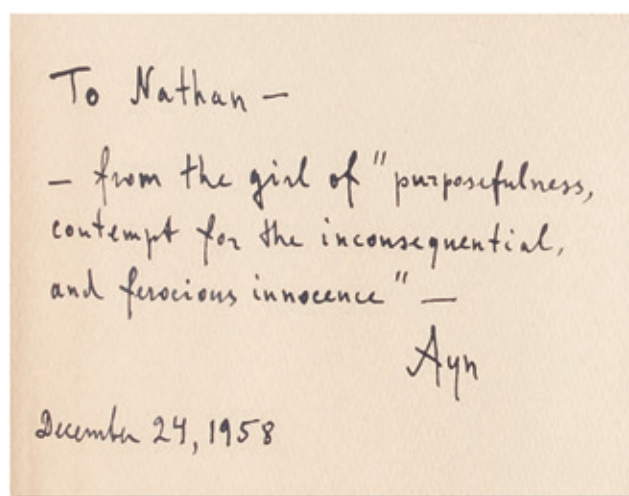 To Nathan —
— from the girl of "purposefulness,
contempt for the inconsequential,
and ferocious innocence" —
Ayn
December 24, 1958